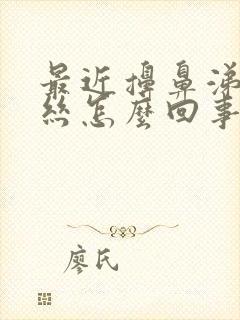 最近擤鼻涕
絲怎麼回事
廖氏